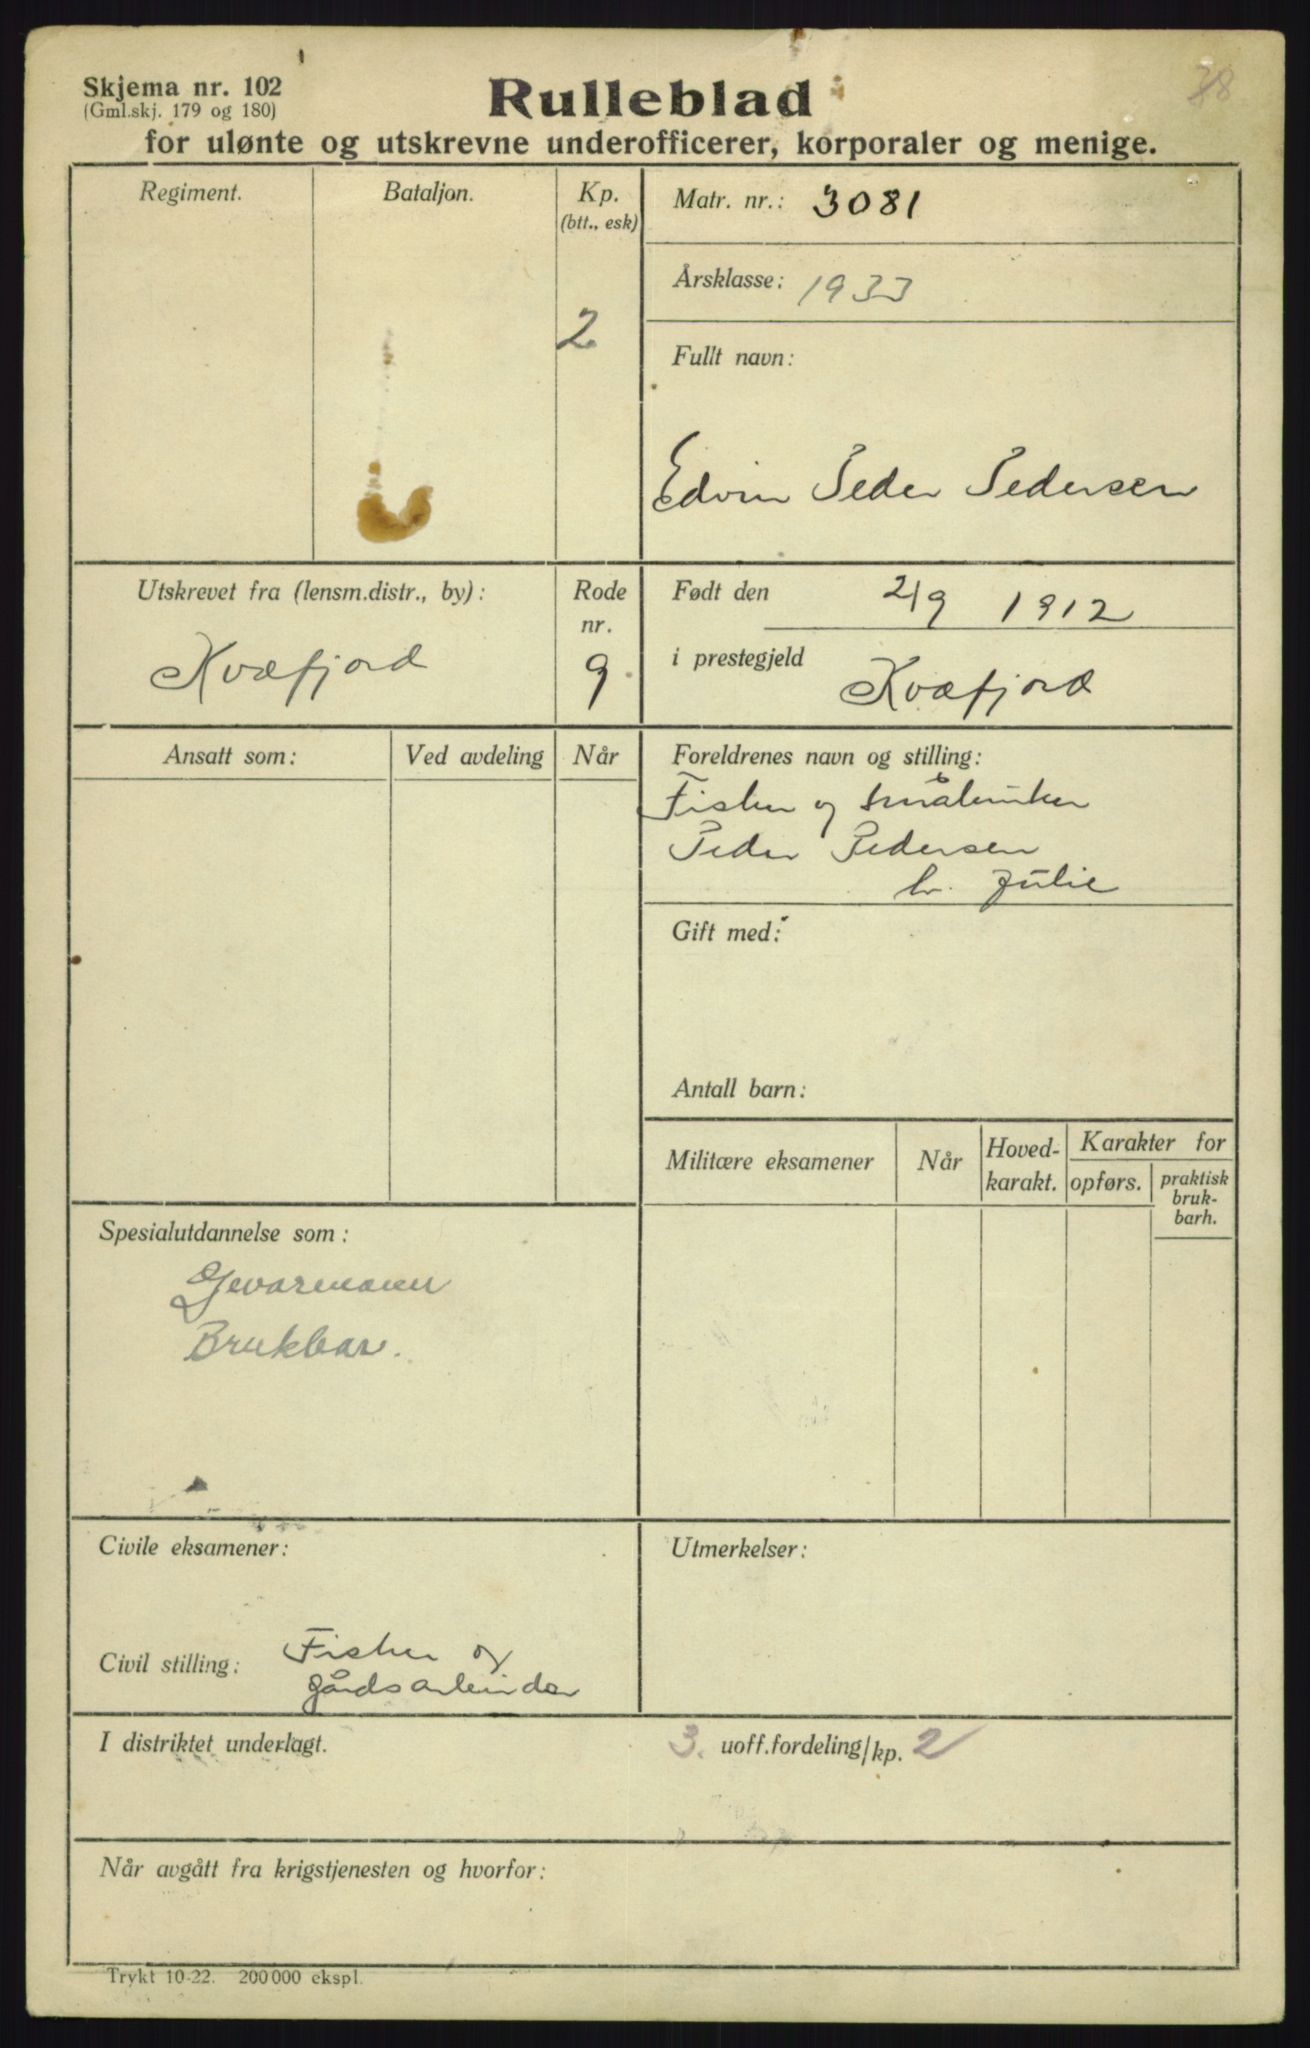 Skjema nr. 102
(Gml.skj. 179 og 180)
38
Rulleblad
for ulønte og utskrevne underofficerer, korporaler og menige.
Regiment.
Bataljon.
Kp.
(btt., esk)
2
Matr. nr.: 3081
Årsklasse: 1933
Fullt navn:
Edvin Peder Pedersen
Utskrevet fra (lensm.distr., by):
Kvæfjord
Rode
nr.
9
Født den 2/9 1912
i prestegjeld Kvæfjord
Ansatt som:
Ved avdeling
Når
Foreldrenes navn og stilling:
Fisker og småbruker
Peder Pedersen
h. Julie
Gift med:
Antall barn:
Militære eksamener
Når
Hoved-
karakt.
Karakter for
opførs.
praktisk
bruk-
barh.
Spesialutdannelse som:
Geværmann
Brukbar.
Civile eksamener:
Utmerkelser:
Civil stilling: Fisker og
gårdsarbeider
I distriktet underlagt.
3. uoff.fordeling/kp. 2
Når avgått fra krigstjenesten og hvorfor:
Trykt 10-22. 200 000 ekspl.